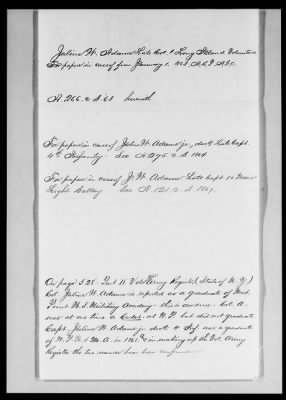 Julius W. Adams Late Col. 1 Long Island Volunteers
For papers in case of from January 1.
A. 266. C.B. 63
For papers in case of Julius W. Adams jr., dec'd Late Capt.
4th Infantry See A 295 C.B. 1864
For papers in case of J. W. Adams Late Capt. 12 Maine
Light Battery See
On page 528 Part II Vol. Army Register (State of N.Y.)
Col. Julius W. Adams is reported as a graduate of West
Point U.S. Military Academy - this is an error - Col. A.
was at one time a Cadet at W.P. but did not graduate
Capt. Julius W. Adams jr. dec'd 4 Inf. was a graduate
of U.S.M.A. in 1861 & in making up the Vol. Army
Register the two names have been confused